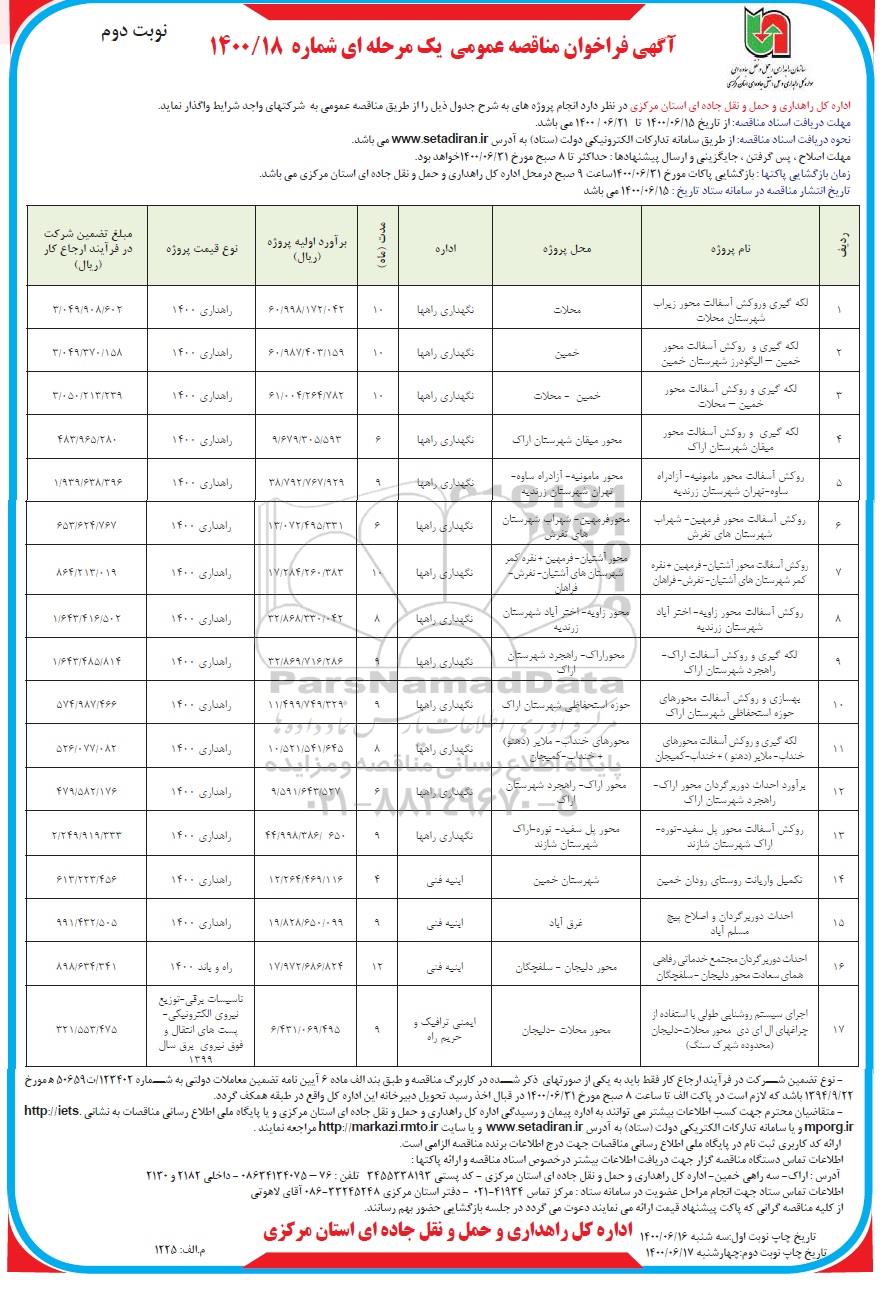 نوبت دوم
آگهی فراخوان مناقصه عمومی یک مرحله ای شماره ۱۴۰۰/۱۸
سازمان راهداری و حمل و نقل جاده ای
اداره کل راهداری و حمل و نقل جاده ای استان مرکزی در نظر دارد انجام پروژه های به شرح جدول ذیل را از طریق مناقصه عمومی به شرکتهای واجد شرایط واگذار نماید.
مهلت دریافت اسناد مناقصه: از تاریخ ۱۴۰۰/۰۶/۱۵ تا ۱۴۰۰/۰۶/۲۱ می باشد.
نحوه دریافت اسناد مناقصه: از طریق سامانه تدارکات الکترونیکی دولت (ستاد) به آدرس www.setadiran.ir می باشد.
مهلت اصلاح ، پس گرفتن ، جایگزینی و ارسال پیشنهادها : حداکثر تا ۸ صبح مورخ ۱۴۰۰/۰۶/۳۱خواهد بود.
زمان بازگشایی پاکتها : بازگشایی پاکات مورخ ۱۴۰۰/۰۶/۳۱ساعت ۹ صبح درمحل اداره کل راهداری و حمل و نقل جاده ای استان مرکزی می باشد.
تاریخ انتشار مناقصه در سامانه ستاد تاریخ : ۱۴۰۰/۰۶/۱۵ می باشد
ردیف | نام پروژه | محل پروژه | اداره | مدت (ماه) | برآورد اولیه پروژه (ریال) | نوع قیمت پروژه | مبلغ تضمین شرکت در فرآیند ارجاع کار (ریال)
۱ | لکه گیری وروکش آسفالت محور زیراب شهرستان محلات | محلات | نگهداری راهها | ۱۰ | ۶۰/۹۹۸/۱۷۲/۰۴۲ | راهداری ۱۴۰۰ | ۳/۰۴۹/۹۰۸/۶۰۲
۲ | لکه گیری و روکش آسفالت محور خمین – الیگودرز شهرستان خمین | خمین | نگهداری راهها | ۱۰ | ۶۰/۹۸۷/۴۰۳/۱۵۹ | راهداری ۱۴۰۰ | ۳/۰۴۹/۳۷۰/۱۵۸
۳ | لکه گیری و روکش آسفالت محور خمین – محلات | خمین - محلات | نگهداری راهها | ۱۰ | ۶۱/۰۰۴/۲۶۴/۷۸۲ | راهداری ۱۴۰۰ | ۳/۰۵۰/۲۱۳/۲۳۹
۴ | لکه گیری و روکش آسفالت محور میقان شهرستان اراک | محور میقان شهرستان اراک | نگهداری راهها | ۶ | ۹/۶۷۹/۳۰۵/۵۹۳ | راهداری ۱۴۰۰ | ۴۸۳/۹۶۵/۲۸۰
۵ | روکش آسفالت محور مامونیه- آزادراه ساوه-تهران شهرستان زرندیه | محور مامونیه- آزادراه ساوه- تهران شهرستان زرندیه | نگهداری راهها | ۹ | ۳۸/۷۹۲/۷۶۷/۹۲۹ | راهداری ۱۴۰۰ | ۱/۹۳۹/۶۳۸/۳۹۶
۶ | روکش آسفالت محور فرمهین- شهراب شهرستان های تفرش | محورفرمهین- شهراب شهرستان های تفرش | نگهداری راهها | ۶ | ۱۳/۰۷۲/۴۹۵/۳۳۱ | راهداری ۱۴۰۰ | ۶۵۳/۶۲۴/۷۶۷
۷ | روکش آسفالت محور آشتیان-فرمهین +نقره کمر شهرستان های آشتیان-تفرش-فراهان | محور آشتیان-فرمهین +نقره کمر شهرستان های آشتیان- تفرش- فراهان | نگهداری راهها | ۱۰ | ۱۷/۲۸۴/۲۶۰/۳۸۳ | راهداری ۱۴۰۰ | ۸۶۴/۲۱۳/۰۱۹
۸ | روکش آسفالت محور زاویه- اختر آباد شهرستان زرندیه | محور زاویه- اختر آباد شهرستان زرندیه | نگهداری راهها | ۸ | ۳۲/۸۶۸/۳۳۰/۰۴۲ | راهداری ۱۴۰۰ | ۱/۶۴۳/۴۱۶/۵۰۲
۹ | لکه گیری و روکش آسفالت اراک- راهجرد شهرستان اراک | محوراراک- راهجرد شهرستان اراک | نگهداری راهها | ۹ | ۳۲/۸۶۹/۷۱۶/۲۸۶ | راهداری ۱۴۰۰ | ۱/۶۴۳/۴۸۵/۸۱۴
۱۰ | بهسازی و روکش آسفالت محورهای حوزه استحفاظی شهرستان اراک | حوزه استحفاظی شهرستان اراک | نگهداری راهها | ۹ | ۱۱/۴۹۹/۷۴۹/۳۲۹ | راهداری ۱۴۰۰ | ۵۷۴/۹۸۷/۴۶۶
۱۱ | لکه گیری و روکش آسفالت محورهای خنداب-ملایر (دهنو) +خنداب-کمیجان | محورهای خنداب- ملایر (دهنو) + خنداب-کمیجان | نگهداری راهها | ۸ | ۱۰/۵۲۱/۵۴۱/۶۴۵ | راهداری ۱۴۰۰ | ۵۲۶/۰۷۷/۰۸۲
۱۲ | برآورد احداث دوربرگردان محور اراک- راهجرد شهرستان اراک | محور اراک- راهجرد شهرستان اراک | نگهداری راهها | ۶ | ۹/۵۹۱/۶۴۳/۵۲۷ | راهداری ۱۴۰۰ | ۴۷۹/۵۸۲/۱۷۶
۱۳ | روکش آسفالت محور پل سفید-توره- اراک شهرستان شازند | محور پل سفید- توره-اراک شهرستان شازند | نگهداری راهها | ۹ | ۴۴/۹۹۸/۳۸۶/ ۶۵۰ | راهداری ۱۴۰۰ | ۲/۲۴۹/۹۱۹/۳۳۳
۱۴ | تکمیل واریانت روستای رودان خمین | شهرستان خمین | ابنیه فنی | ۴ | ۱۲/۲۶۴/۴۶۹/۱۱۶ | راهداری ۱۴۰۰ | ۶۱۳/۲۲۳/۴۵۶
۱۵ | احداث دوربرگردان و اصلاح پیچ مسلم آباد | غرق آباد | ابنیه فنی | ۹ | ۱۹/۸۲۸/۶۵۰/۰۹۹ | راهداری ۱۴۰۰ | ۹۹۱/۴۳۲/۵۰۵
۱۶ | احداث دوربرگردان مجتمع خدماتی رفاهی همای سعادت محور دلیجان -سلفچگان | محور دلیجان - سلفچگان | ابنیه فنی | ۱۲ | ۱۷/۹۷۲/۶۸۶/۸۲۴ | راه و باند ۱۴۰۰ | ۸۹۸/۶۳۴/۳۴۱
۱۷ | اجرای سیستم روشنایی طولی با استفاده از چراغهای ال ای دی محور محلات-دلیجان (محدوده شهرک سنگ) | محور محلات -دلیجان | ایمنی ترافیک و حریم راه | ۹ | ۶/۴۳۱/۰۶۹/۴۹۵ | تاسیسات برقی-توزیع نیروی الکترونیکی- پست های انتقال و فوق نیروی برق سال ۱۳۹۹ | ۳۲۱/۵۵۳/۴۷۵
ParsNamadData
مرکز فرآوری اطلاعات پارس نماد داده ها
پایگاه اطلاع رسانی مناقصه و مزایده
۰۲۱-۸۸۳۴۹۶۷۰-۵
- نوع تضمین شرکت در فرآیند ارجاع کار فقط باید به یکی از صورتهای ذکر شده در کاربرگ مناقصه و طبق بند الف ماده ۶ آیین نامه تضمین معاملات دولتی به شماره ۱۲۳۴۰۲/ت۵۰۶۵۹ ه مورخ
۱۳۹۴/۹/۲۲ باشد که لازم است در پاکت الف تا ساعت ۸ صبح مورخ ۱۴۰۰/۰۶/۳۱ در قبال اخذ رسید تحویل دبیرخانه این اداره کل واقع در طبقه همکف گردد.
- متقاضیان محترم جهت کسب اطلاعات بیشتر می توانند به اداره پیمان و رسیدگی اداره کل راهداری و حمل و نقل جاده ای استان مرکزی و یا پایگاه ملی اطلاع رسانی مناقصات به نشانی http://iets.
mporg.ir و یا سامانه تدارکات الکتریکی دولت (ستاد) به آدرس www.setadiran.ir و یا سایت http://markazi.rmto.ir مراجعه نمایند .
ارائه کد کاربری ثبت نام در پایگاه ملی اطلاع رسانی مناقصات جهت درج اطلاعات برنده مناقصه الزامی است.
اطلاعات تماس دستگاه مناقصه گزار جهت دریافت اطلاعات بیشتر درخصوص اسناد مناقصه و ارائه پاکتها :
آدرس : اراک- سه راهی خمین- اداره کل راهداری و حمل و نقل جاده ای استان مرکزی - کد پستی ۳۴۵۵۳۳۸۱۹۳ تلفن : ۷۶ - ۰۸۶۳۴۱۳۴۰۷۵ - داخلی ۲۱۸۲ و ۲۱۳۰
اطلاعات تماس ستاد جهت انجام مراحل عضویت در سامانه ستاد : مرکز تماس ۴۱۹۳۴-۰۲۱ - دفتر استان مرکزی ۳۳۲۴۵۲۴۸-۰۸۶ آقای لاهوتی
از کلیه مناقصه گرانی که پاکت پیشنهاد قیمت ارائه می نمایند دعوت می گردد در جلسه بازگشایی حضور بهم رسانند.
تاریخ چاپ نوبت اول:سه شنبه ۱۴۰۰/۰۶/۱۶
تاریخ چاپ نوبت دوم:چهارشنبه ۱۴۰۰/۰۶/۱۷
اداره کل راهداری و حمل و نقل جاده ای استان مرکزی
م.الف: ۱۲۲۵